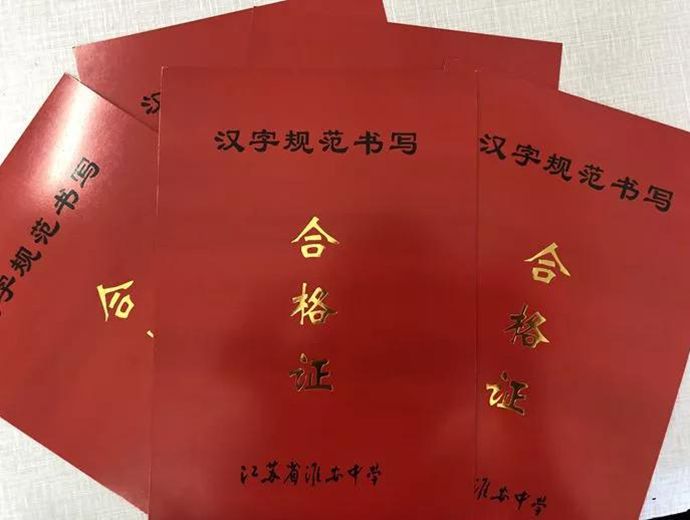 汉字规范书写
合
格
证
江苏省淮安中学
汉字规范书写
合
格
证
淮安中学
字规范书写
合
汉